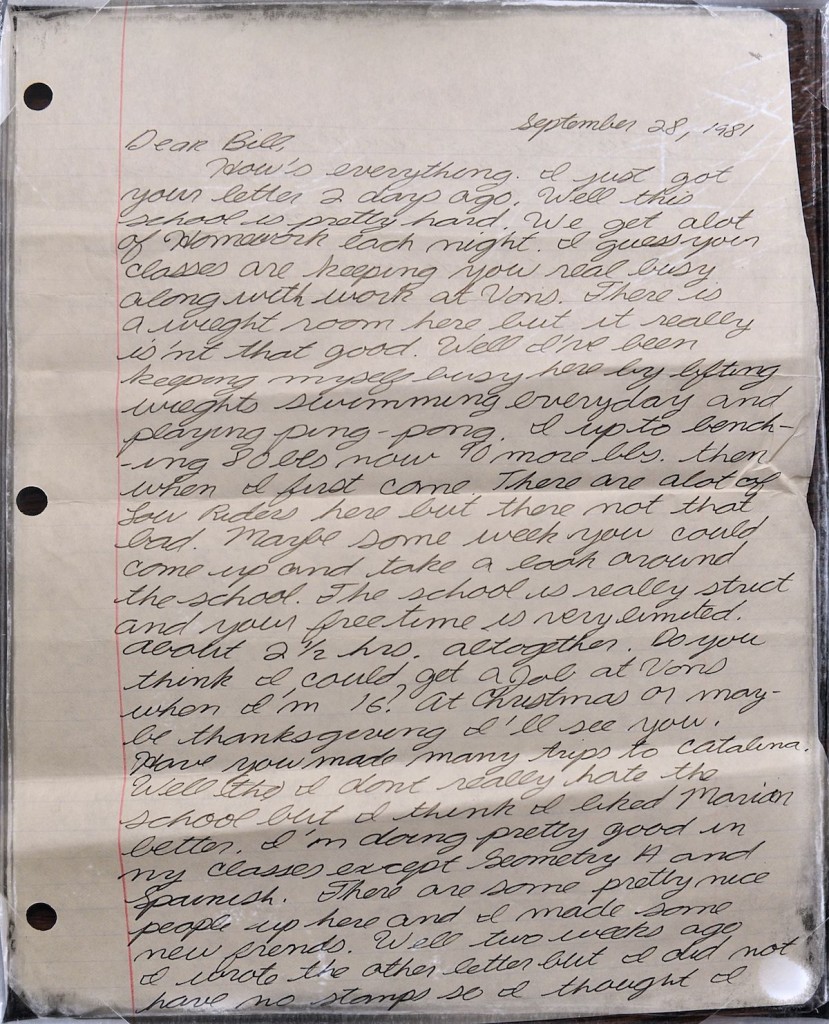 September 28, 1981
Dear Bill,
How's everything. I just got
your letter 2 days ago. Well this
school is pretty hard. We get alot
of Homework each night. I guess your
classes are keeping you real busy
along with work at Vons. There is
a wieght room here but it really
is'nt that good. Well I've been
keeping myself busy here by lifting
wieghts swimming everyday and
playing ping-pong. I up to bench-
-ing 80 lbs now 90 more lbs. then
when I first come. There are alot of
Low Riders here but there not that
bad. Maybe some week you could
come up and take a look around
the school. The school is really strict
and your free time is very limited.
about 2½ hrs. altogether. Do you
think I could get a Job at Vons
when I'm 16? At Christmas or may-
be thanksgiving I'll see you.
Have you made many trips to Catalina.
Well I dont really hate the
school but I think I liked Marian
better. I'm doing pretty good in
my classes except Geometry A and
Spainish. There are some pretty nice
people up here and I made some
new friends. Well two weeks ago
I wrote the other letter but I did not
have no stamps so I thought I